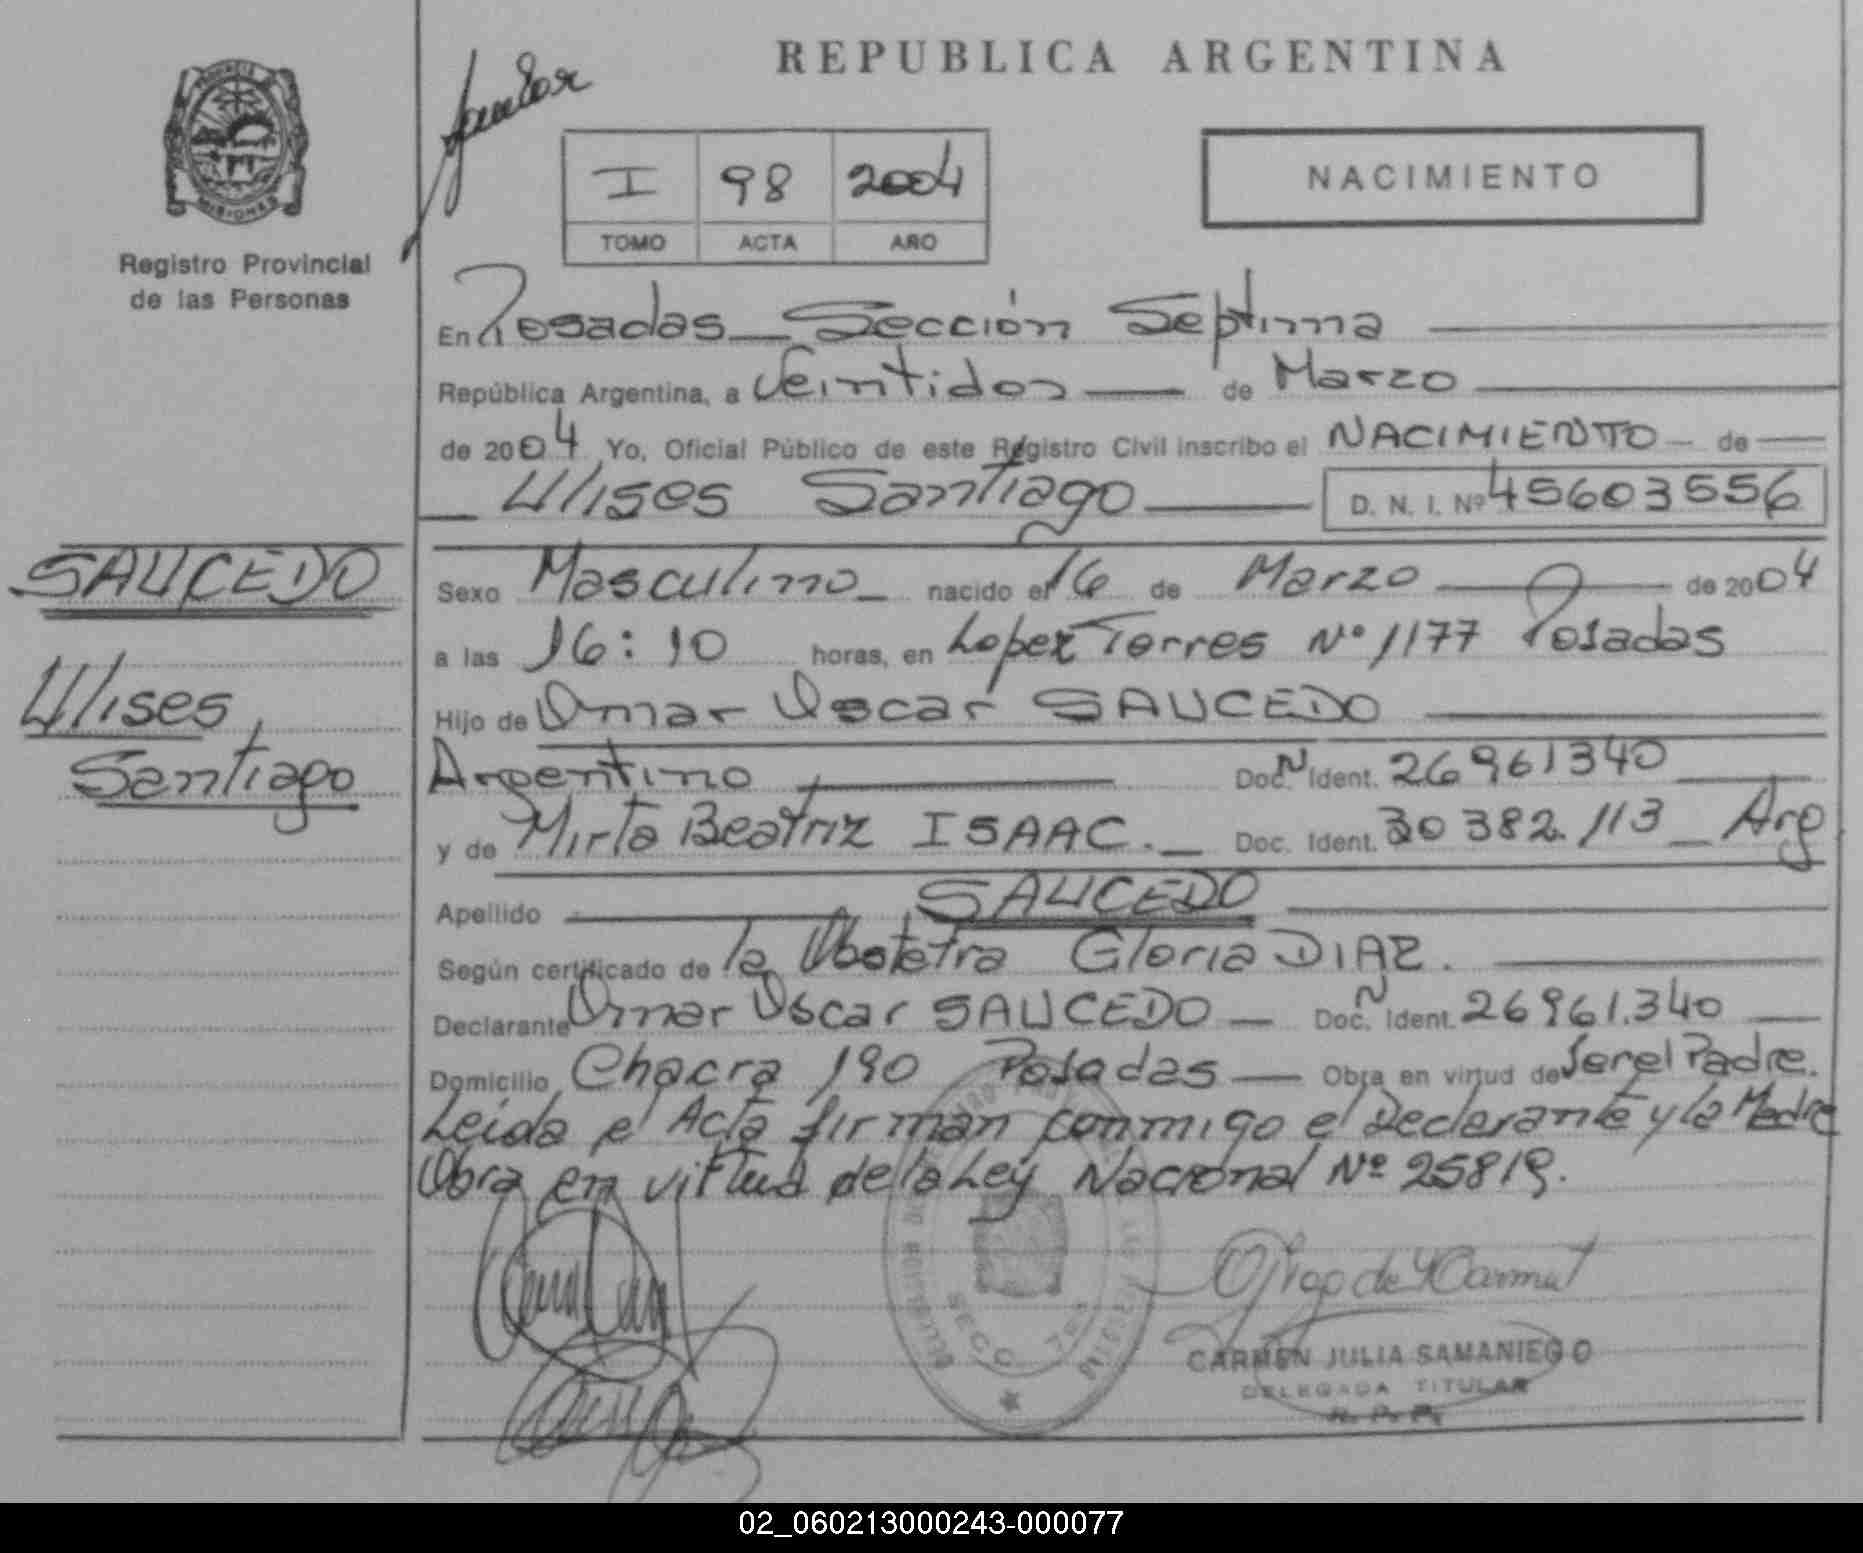 REPUBLICA ARGENTINA
PROVINCIA
MISIONES
Registro Provincial
de las Personas
I 98 2004
TOMO ACTA AÑO
NACIMIENTO
En Posadas — Sección Septima
República Argentina, a Veintidos — de Marzo
de 2004 Yo, Oficial Público de este Registro Civil inscribo el NACIMIENTO — de —
— Ulises Santiago — D. N. I. Nº 45603556
SAUCEDO
Ulises
Santiago
Sexo Masculino — nacido el 16 de Marzo — de 2004
a las 16:10 horas, en Lopez Torres Nº 1177 Posadas
Hijo de Omar Oscar SAUCEDO
Argentino — Doc. N Ident. 26961340
y de Mirta Beatriz ISAAC. — Doc. Ident. 30382.113 — Arg
Apellido — SAUCEDO
Según certificado de la Obstetra Gloria DIAZ.
Declarante Omar Oscar SAUCEDO — Doc. N Ident. 26961.340
Domicilio Chacra 190 Posadas — Obra en virtud de Ser el Padre.
Leida el Acta firman conmigo el Declarante y la Madre
Obra en virtud de la Ley Nacional Nº 25819.
SECC. 7ma
CARMEN JULIA SAMANIEGO
DELEGADA TITULAR
R. P. P.
02_060213000243-000077